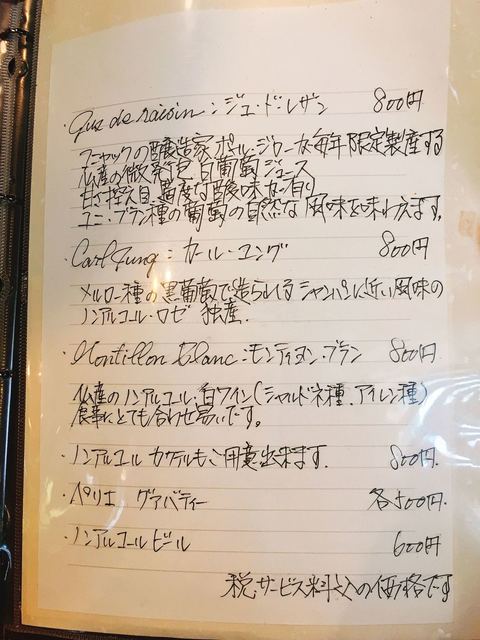 ・Jus de raisin : ジュ・ド・レザン 800円
コニャックの醸造家 ポール・ジローが毎年限定製産する
仏産の微発泡白葡萄ジュース
甘さ控え目、適度な酸味が有り
ユニ・ブラン種の葡萄の自然な風味を味わえます。
・Carl Jung : カール・ユング 800円
メルロー種の黒葡萄で造られてるシャンパンに近い風味の
ノンアルコール・ロゼ 独産.
・Montillon blanc : モンティヨン・ブラン 800円.
仏産のノンアルコール・白ワイン(シャルドネ種、アイレン種)
食事にとても合わせ易いです。
・ノンアルコール カクテルもご用意出来ます. 800円.
・ペリエ グァバティー 各500円.
・ノンアルコールビール 600円
税、サービス料込の価格です